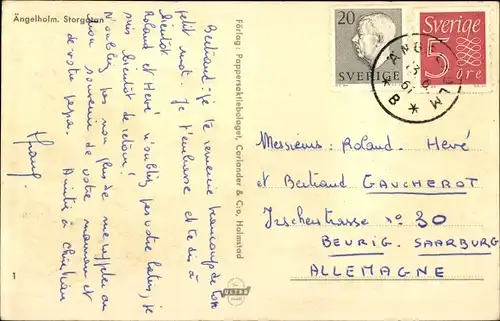 Ängelholm. Storgatan
Bertrand: je te remercie beaucoup de ton
petit mot. Je t'embrasse et te dis à
bientôt
Roland et Hervé n'oubliez pas votre latin; je
suis bientôt de retour!
N'oubliez pas non plus de me rappeler au
bon souvenir de votre maman et
de votre papa. Amitié à Christian
Förlag: Pappersaktiebolaget, Carlander & C:o, Halmstad
1
ULTRA
20
SVERIGE
Sverige
5
öre
ÄNGELHOLM
* B *
Messieurs: Roland. Hervé
et Bertrand GAUCHEROT
Irscherstrasse no 30
BEURIG. SAARBURG
ALLEMAGNE